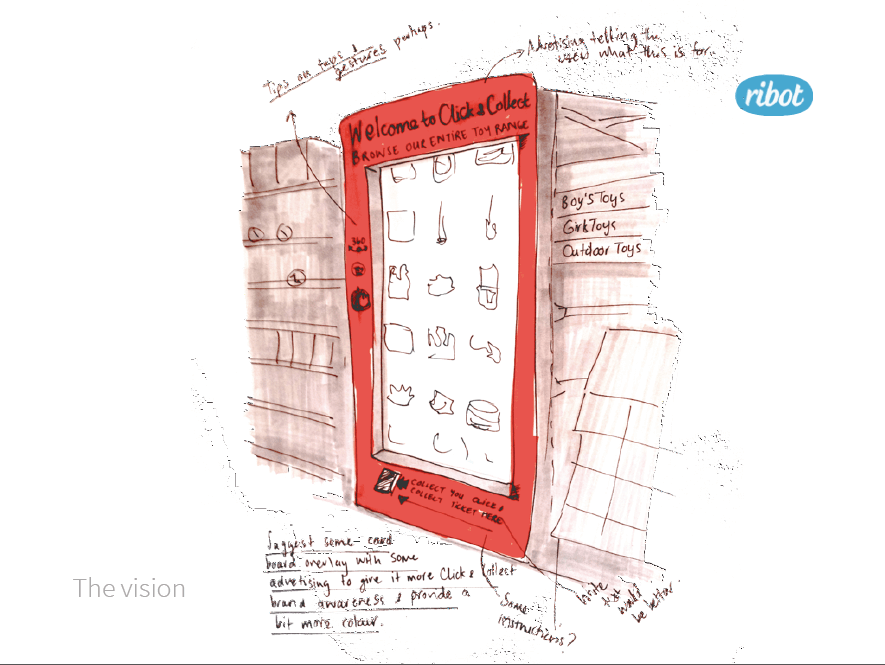 Tips on taps &
gestures perhaps.
Advertising telling the
user what this is for.
ribot
Welcome to Click & Collect
BROWSE OUR ENTIRE TOY RANGE
Boy's Toys
Girls Toys
Outdoor Toys
360
COLLECT YOU CLICK &
COLLECT TICKET HERE
Suggest some card
board overlay with some
advertising to give it more Click & Collect
brand awareness & provide a
bit more colour.
Some
instructions?
White
text
would
be better.
The vision